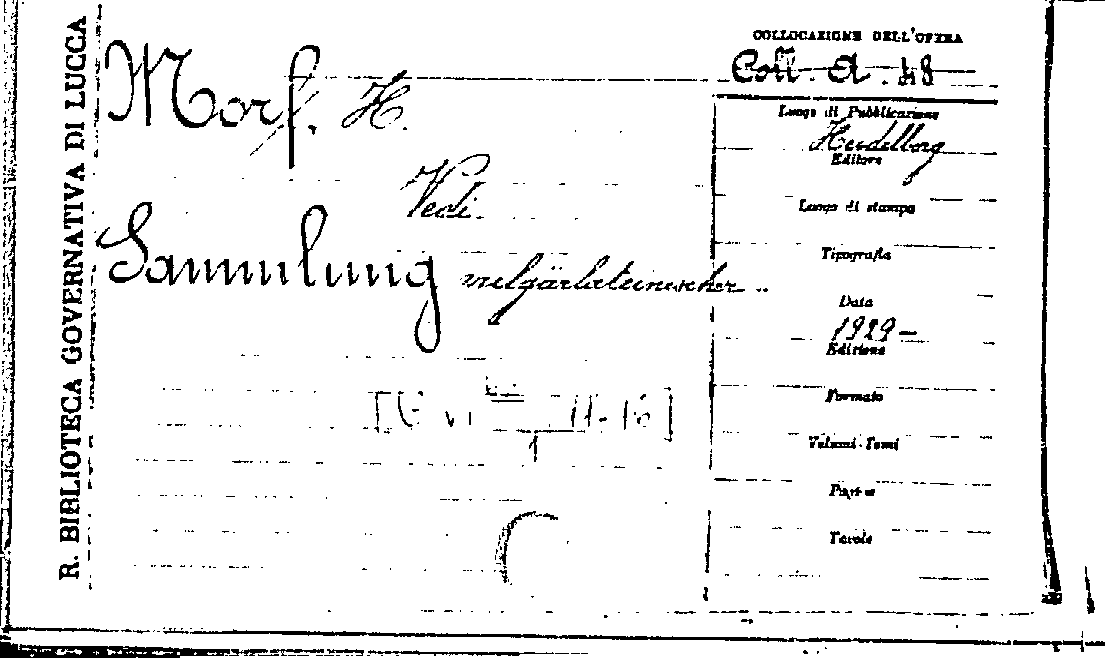 R. BIBLIOTECA GOVERNATIVA DI LUCCA
Morf. H.
Vedi
Sammlung vulgärlateinischer ..
11-16]
COLLOCAZIONE DELL'OPERA
Coll. A. 48
Luogo di Pubblicazione
Heidelberg
Editore
Luogo di stampa
Tipografia
Data
1929-
Edizione
Formato
Volumi-Tomi
Partie
Tavole